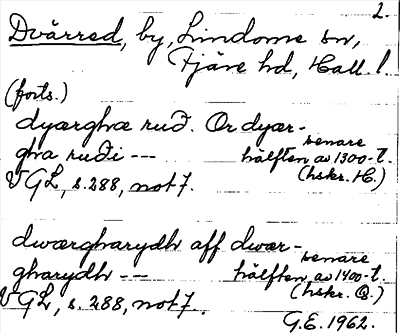 2.
Dvärred, by, Lindome sn,
Fjäre hd, Hall. l.
(forts.)
dyærghæ ruð. Or dyær-
gha ruði --- senare hälften av 1300-t.
VGL, s. 288, not 7. (hskr. H.)
dwærgharydh aff dwær-
gharydh --- senare hälften av 1400-t.
VGL, s. 288, not 7. (hskr. Q.)
G.E. 1962.